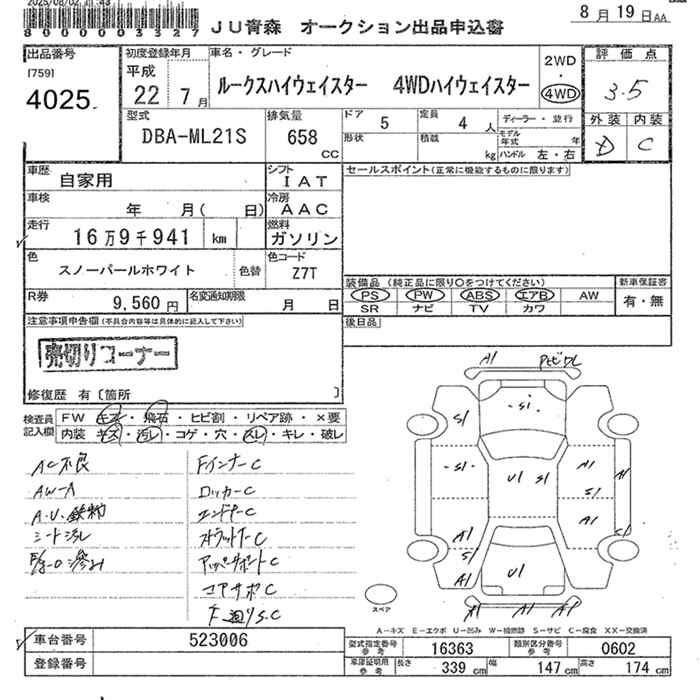 8月19日AA
8000003327
JU青森 オークション出品申込書
出品番号
[759]
4025
初度登録年月
平成
22 7月
車名・グレード
ルークスハイウェイスター 4WDハイウェイスター
2WD
・
4WD
評価点
3.5
外装 内装
D C
型式
DBA-ML21S
排気量
658
CC
ドア 5
形状
定員 4人
積載 kg
ディーラー・並行
モデル年式 年
ハンドル 左・右
車歴
自家用
シフト
IAT
車検
年 月( 日)
冷房
AAC
走行
16万9千941 km
燃料
ガソリン
色
スノーパールホワイト
色替
色コード
Z7T
R券
9,560円
名変通知期限
月 日
セールスポイント(正常に機能するものに限ります)
装備品(純正品に限り○をつけてください)
PS PW ABS エアB AW
SR ナビ TV カワ
新車保証書
有・無
後日品
注意事項申告欄(不具合内容等は具体的に記入して下さい)
売切りコーナー
修復歴 有〔箇所 〕
検査員記入欄
FW キズ・飛石・ヒビ割・リペア跡・×要
内装 キズ・汚レ・コゲ・穴・スレ・キレ・破レ
AC不良
AW-A
A.U.鉄粉
シート汚レ
Fインナーc
ロッカーC
エンドナーC
ストラットナーC
アッパーサポートC
コアサポC
下廻りS.C
A1
S1
・S1
-S1
U1 S1
A1
S1
A1
A1
A1
S1
A1
U1
A1 A1 A1
スペア
A－キズ E－エクボ U－凹み W－補修跡 S－サビ C－腐食 XX－交換済
車台番号 523006
登録番号
型式指定番号 参考 16363
類別区分番号 参考 0602
車庫証明用 参考 長さ 339cm 幅 147cm 高さ 174cm